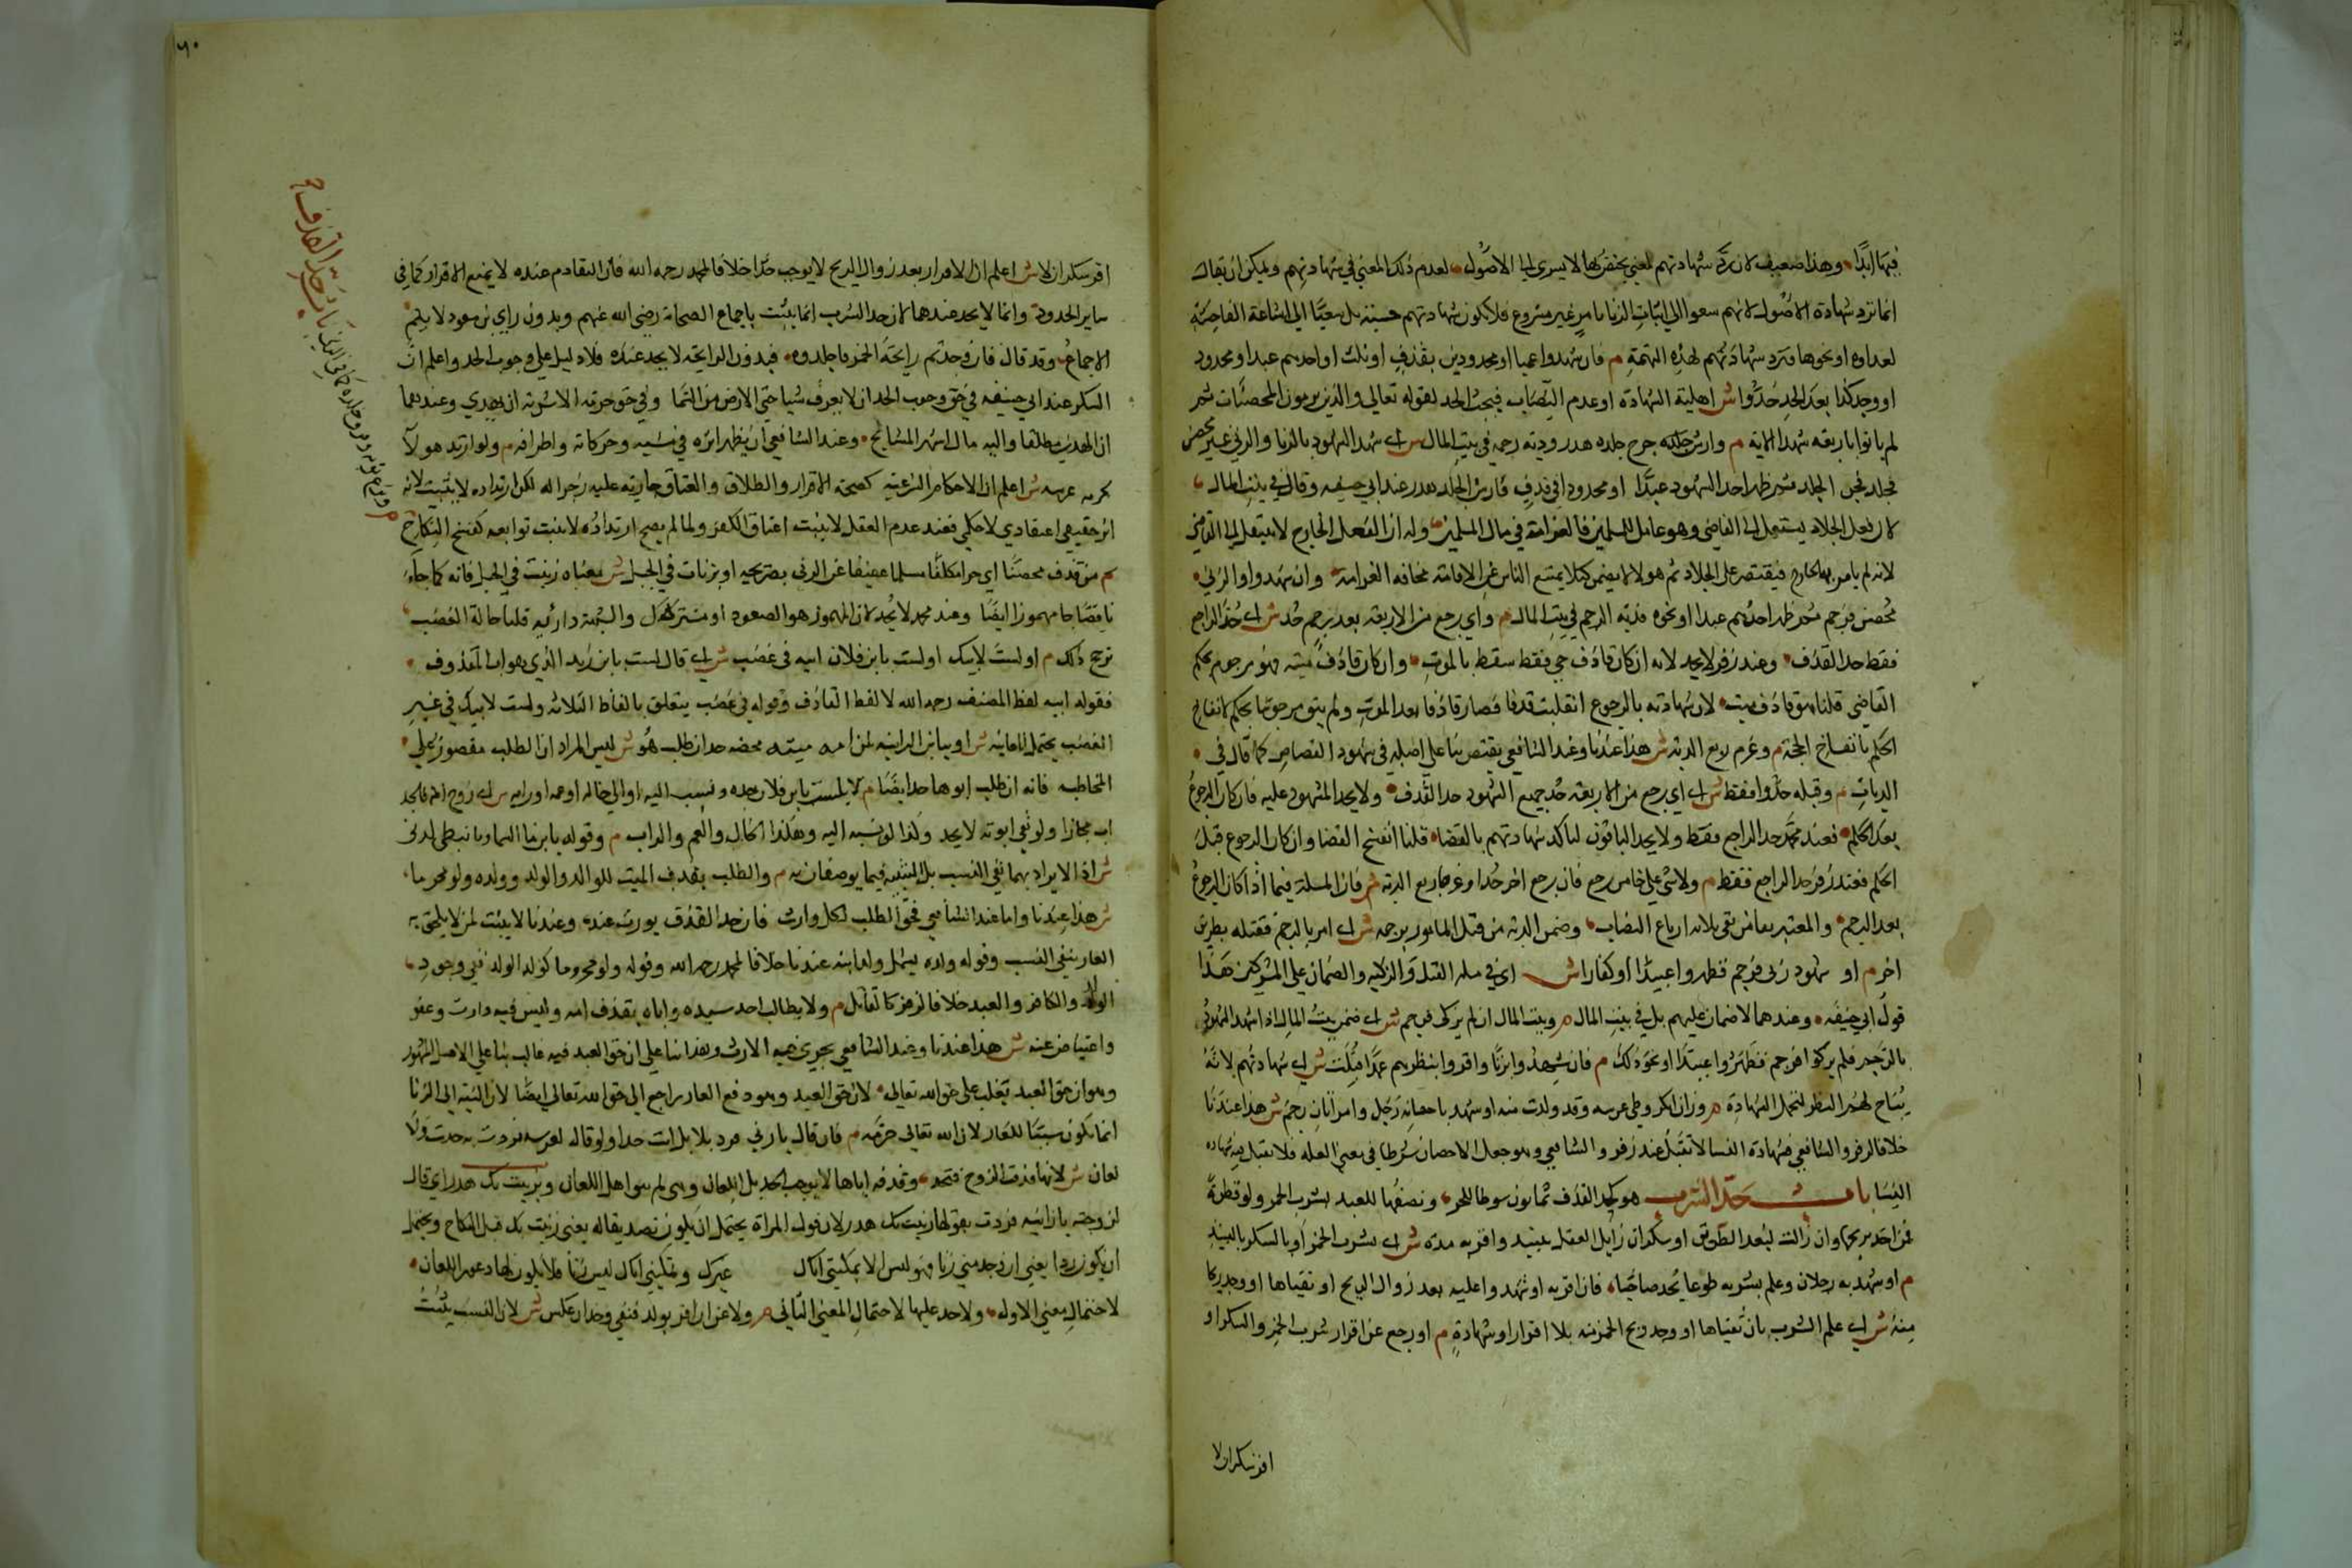 فيها ابدًا وهذا ضعيف لان ردّ شهادتهم لمعني يختص بها لا يسري الي الاصول لعدم ذلك المعني في شهادتهم ويمكن ان يقال
انما ترد شهادة الاصول لانهم سعوا الي اثبات الزنا بامر غير مشروع فلا يكون شهادتهم حسبة بل سعيًا الي اشاعة الفاحشة
لعداوة او نحوها فترد شهادتهم لهذه التهمة م فان شهدوا عميا او محدودين بقذف او ثلث او احدهم عبد او محدود
او وجد كذا بعد الحد حدّوا ش اهلية الشهادة او عدم النصاب فيجب الحد لقوله تعالي والذين يرمون المحصنات ثم
لم ياتوا باربعة شهدا الاية م وارش جلده جرح جلده هدر ودية رجمه في بيت المال ش اي شهد الشهود بالزنا والزاني غير محصن
فجلد فجرح الجلد ثم ظهر احد الشهود عبدًا او محدودا في قذف فارش الجلد هدر عند ابي حنيفه وقالا في بيت المال
لان فعل الجلاد ينتقل الي القاضي وهو عامل للمسلمين فالغرامة في مال المسلمين وله ان الفعل الجارح لا ينتقل الي القاضي
لانه لم يامر بالجارح فيقتصر علي الجلاد ثم هو لا يضمن كيلا يمتنع الناس عن الاقامة مخافة الغرامة وان شهدوا والزاني
محصن فرجم ثم ظهر احدهم عبدا او نحوه فدية الرجم في بيت المال م واي رجع من الاربعة بعد رجم حد ش اي حد الراجع
فقط حد القذف وعند زفر لا يحد لانه ان كان قاذف حي فقط سقط بالموت وان كان قاذف ميت فهو مرجوم بحكم
القاضي قلنا هو قاذف ميت لان شهادته بالرجوع انقلبت قذفا فصار قاذفا بعد الموت ولم يبق مرجوما بحكم لانفساخ
الحكم بانفساخ الحجة م وغرم ربع الدية ش هذا عندنا وعند الشافعي يقتص بنا علي اصله في شهود القصاص كما قال في
الديات م وقبله حدّوا فقط ش اي اي رجع من الاربعة حد جميع الشهود حد القذف ولا يحد المشهود عليه فان كان الرجوع
بعد الحكم فعند محمد حد الراجع فقط ولا يحد الباقون لتاكد شهادتهم بالقضا قلنا انفسخ القضا وان كان الرجوع قبل
الحكم فعند زفر حد الراجع فقط م ولا شي علي خامس رجع فان رجع اخر حدا وغرما ربع الدية ش فان المسئلة فيما اذا كان الرجوع
بعد الرجم والمعتبر بقا من بقي ثلاثة ارباع النصاب وضمن الدية من قتل المامور برجمه ش اي امر بالرجم فقتله بطريق
اخر م او شهود زني فرجم فظهروا عبيدًا او كفارا ش اي في مسله القتل والتزكية والضمان علي المزكين هذا
قول ابي حنيفه وعندهما لا ضمان عليهم بل في بيت المال م وبيت المال ان لم يزكي فرجم ش اي ضمن بيت المال اذا شهد الشهود
بالزنا فلم يزكوا فرجم فظهروا عبيدًا او نحو ذلك م فان شهدوا بزنا واقروا بنظرهم عمدًا قبلت ش اي شهادتهم لانه
يباح لهم النظر لتحمل الشهادة م وزان انكر وطي عرسه وقد ولدت منه او شهد باحصانه رجل وامراتان رجم ش هذا عندنا
خلافا لزفر والشافعي فشهادة النسا لا تقبل عند زفر والشافعي وهو جعل الاحصان شرطا في معني العلة فلا تقبل فيه شهادة
النسا باب حدّ الشرب هو كحد القذف ثمانون سوطا للحر ونصفها للعبد بشرب الخمر ولو قطرة
فمن اخذ بريحها وان زالت لبعد الطريق او سكران زايل العقل بنبيذ واقر به مدة ش اي بشرب الخمر او بالسكر بالنبيذ
م او شهد به رجلان وعلم بشربه طوعا يحد صاحيًا فان اقر به او شهد واعليه بعد زوال الريح او تقياها او وجد ريحها
منه ش اي علم الشرب بان تقياها او وجد ريح الخمر منه بلا اقرار او شهادة م او رجع عن اقرار شرب الخمر والسكر او
اقر سكران لا
٦٠
اقر سكران لا ش اعلم ان الاقرار بعد زوال الريح لا يوجب حدًا خلافا لمحمد رحمه الله فان التقادم عنده لا يمنع الاقرار كما في
ساير الحدود وانما لا يحد عندهما لان حد الشرب انما يثبت باجماع الصحابة رضي الله عنهم وبدون راي بن مسعود لا يتم
الاجماع وقد قال فان وجدتم رايحة الخمر فاجلدوه فبدون الرايحة لا يحد عنده فلا دليل علي وجوب الحد واعلم ان
السكر عند ابي حنيفه في حق وجوب الحد ان لا يعرف شيا حتي الارض من السما وفي حق حرمة الاشربة ان يهذي وعندهما
ان الهذي مطلقا واليه مال اكثر المشايخ وعند الشافعي ان يظهر اثره في مشيه وحركاته واطرافه م ولو ارتد هو لا
يحرم عرسه ش اعلم ان الاحكام الشرعية كصحة الاقرار والطلاق والعتاق جارية عليه زجرا له لكن ارتداده لا يثبت لانه
امر حقيقي اعتقادي لا حكمي فعند عدم العقل لا يثبت اعتقاد الكفر ولما لم يصح ارتداده لا يثبت توابعه كفسخ النكاح
م من قذف محصنًا اي حرا مكلفًا مسلما عفيفا عن الزني بصريحه او بزنات في الجبل ش معناه زنيت في الجبل فانه كما جاء
ناقصًا جا مهموزا ايضًا وعند محمد لا يحد لان المهموز هو الصعود او مشترك والشبهة دارئة قلنا حالة الغضب
ترجح ذلك م او لست لابيك او لست بابن فلان ابيه في غضب ش اي قال لست بابن زيد الذي هو اب المقذوف
فقوله ابيه لفظ المصنف رحمه الله لا لفظ القاذف وقوله في غضب يتعلق بالفاظ الثلاثة ولست لابيك في غير
الغضب يحتمل المعاتبة ش او يا بن الزانية لمن امه ميتة محصنة حد ان طلب هو ش ليس المراد ان الطلب مقصور علي
المخاطب فانه ان طلب ابوها حد ايضًا م لا بلست بابن فلان جده ونسب اليه او الي خاله او عمه او رابه ش اي زوج امه فالجد
اب مجازا ولو نفي ابوته لا يحد وكذا لو نسبه اليه وهكذا الخال والعم والراب م وقوله يا بن ما السما ويا نبطي لعربي
ش اذ لا يراد بهما نفي النسب بل التشبيه فيما يوصفان به م والطلب بقذف الميت للوالد والولد وولده ولو محروما
ش هذا عندنا واما عند الشافعي فحق الطلب لكل وارث فان حد القذف يورث عنده وعندنا لا يثبت لمن لا يلحق به
العار بنفي النسب وقوله وولده يشمل ولد ابنه عندنا خلافا لمحمد رحمه الله وقوله ولو محروما كولد الولد في وجود
الولد والكافر والعبد خلافا لزفر كالقاتل م ولا يطالب احد سيده واباه بقذف امه وليس فيه دارث وعفو
واعتياض عنه ش هذا عندنا وعند الشافعي يجري فيه الارث وهذا بنا علي ان حق العبد فيه غالب بنا علي الاصل المشهور
وهو ان حق العبد يغلب علي حق الله تعالي لان حق العبد وهو دفع العار راجع الي حق الله تعالي ايضًا لان النسبة الي الزنا
انما تكون سببًا للعار لان الله تعالي حرّمه م فان قال يا زني فرد بلا بل انت حدا ولو قاله لعرسه فردت به حدت ولا
لعان ش لانها قذفت الزوج فتحد وقذفه اياها لا يوجب الحد بل اللعان وهي لم تبق اهل اللعان وبزنيت بك هدر اي قال
لزوجته يا زانية فردت بقولها زنيت بك هدر لان قول المراة يحتمل ان يكون تصديقا له يعني زنيت بك قبل النكاح ويحتمل
ان يكون ردا يعني ان وجد مني زنا فهو ليس الا بمكنتي اياك غيرك وتمكيني اياك ليس بزنا فلا يكون لها دعوي اللعان
لاحتمال معني الاول ولا حد عليها لاحتمال المعني الثاني م ولاعن ان اقر بولد فنفي وحد ان عكس ش لان النسب يثبت
باب حدّ القذف